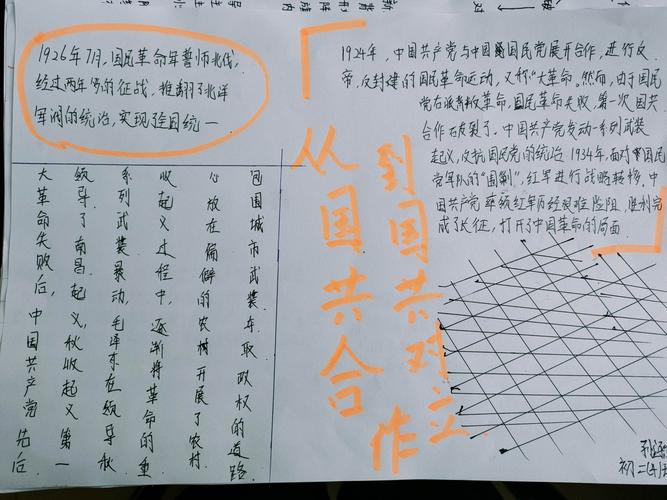 1926年7月,国民革命军誓师北伐,
经过两年多的征战,推翻了北洋
军阀的统治,实现了全国统一
1924年,中国共产党与中国国民党展开合作,进行反
帝,反封建的国民革命运动,又称"大革命。然而,由于国民
党右派叛变革命,国民革命失败,第一次国共
合作破裂了。中国共产党发动一系列武装
起义,反抗国民党的统治 1934年,面对国民
党军队的"围剿",红军进行战略转移,中
国共产党率领红军历经艰险险阻,胜利完
成了长征,打开了中国革命的局面.
从国共合作
到国共对立
大革命失败后,中国共产党先后
领导了南昌起义,秋收起义第一
系列武装暴动,毛泽东在领导秋
收起义过程中,逐渐将革命的重
心放在偏僻的农村开展了农村
包围城市武装夺取政权的道路.
初二(4)